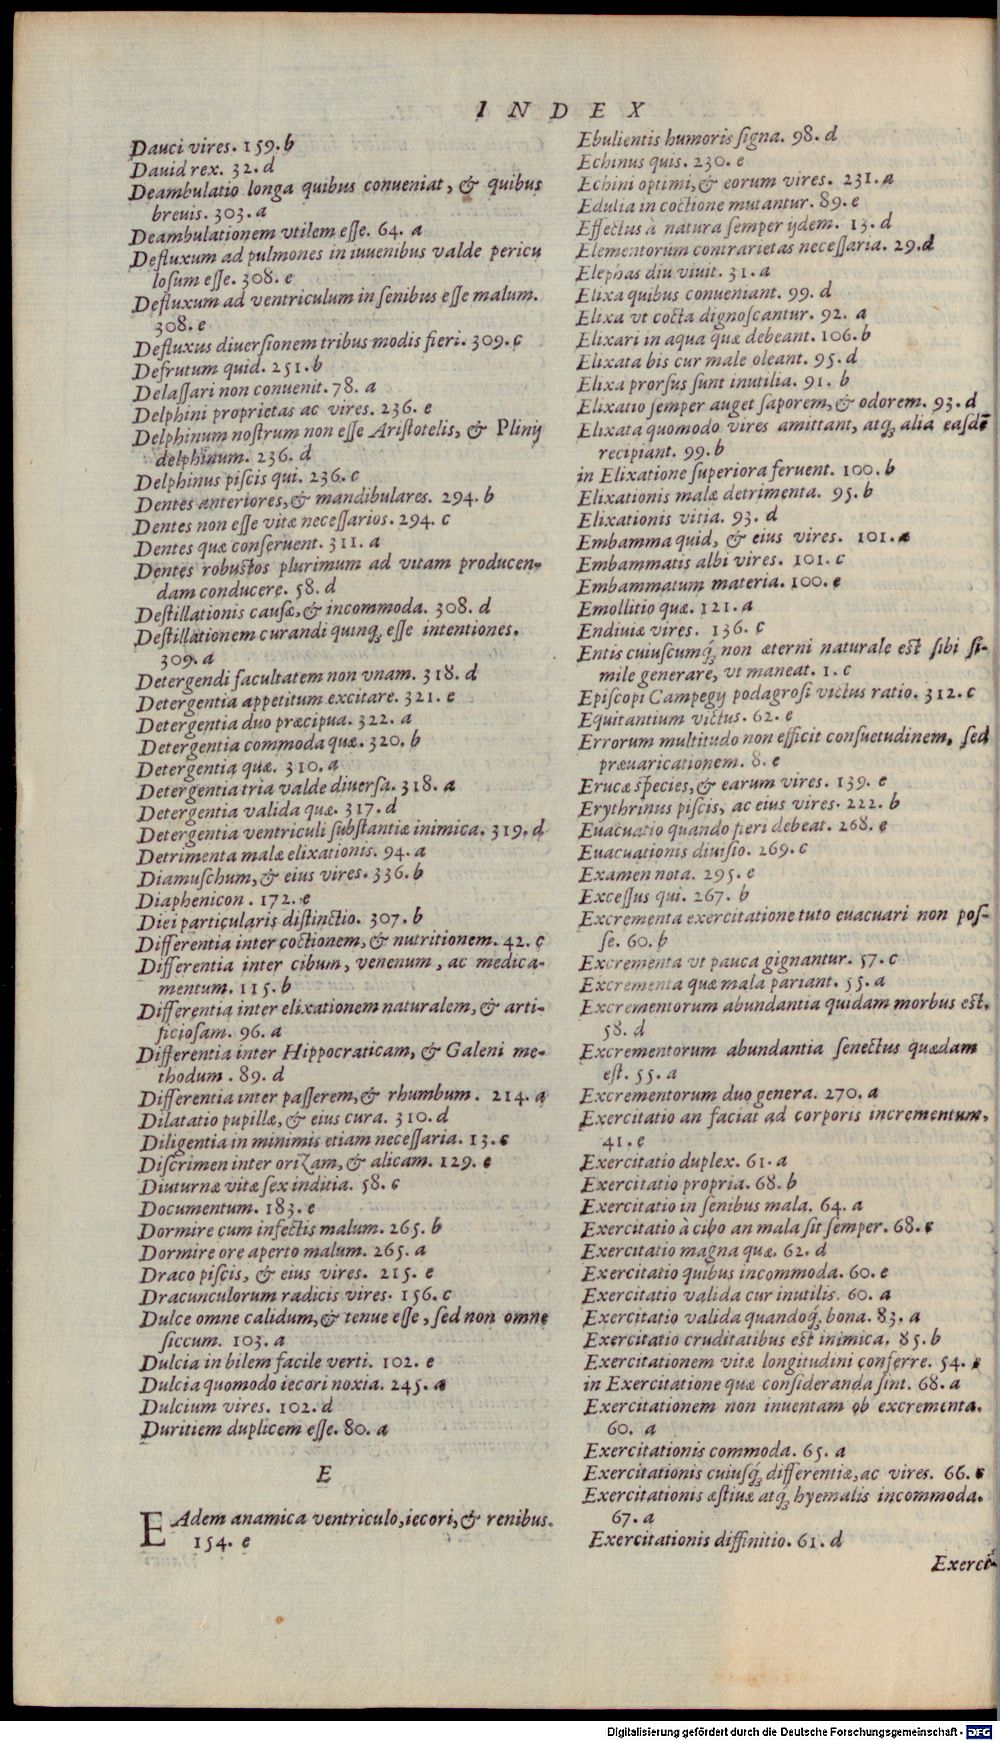 INDEX
Dauci vires. 159. b
Dauid rex. 32. d
Deambulatio longa quibus conueniat, & quibus
breuis. 303. a
Deambulationem vtilem eſſe. 64. a
Defluxum ad pulmones in iuuenibus valde pericu
loſum eſſe. 308. e
Defluxum ad ventriculum in ſenibus eſſe malum.
308. e
Defluxus diuerſionem tribus modis fieri. 309. c
Defrutum quid. 251. b
Delaſſari non conuenit. 78. a
Delphini proprietas ac vires. 236. e
Delphinum noſtrum non eſſe Ariſtotelis, & Plinij
delphinum. 236. d
Delphinus piſcis qui. 236. c
Dentes anteriores, & mandibulares. 294. b
Dentes non eſſe vitæ neceſſarios. 294. c
Dentes quæ conſeruent. 311. a
Dentes robuſtos plurimum ad vitam producen-
dam conducere. 58. d
Deſtillationis cauſæ, & incommoda. 308. d
Deſtillationem curandi quinq; eſſe intentiones.
309. a
Detergendi facultatem non vnam. 318. d
Detergentia appetitum excitare. 321. e
Detergentia duo præcipua. 322. a
Detergentia commoda quæ. 320. b
Detergentia quæ. 310. a
Detergentia tria valde diuerſa. 318. a
Detergentia valida quæ. 317. d
Detergentia ventriculi ſubſtantiæ inimica. 319. d
Detrimenta malæ elixationis. 94. a
Diamuſchum, & eius vires. 336. b
Diaphenicon. 172. e
Diei particularis diſtinctio. 307. b
Differentia inter coctionem, & nutritionem. 42. c
Differentia inter cibum, venenum, ac medica-
mentum. 115. b
Differentia inter elixationem naturalem, & arti-
ficioſam. 96. a
Differentia inter Hippocraticam, & Galeni me-
thodum. 89. d
Differentia inter paſſerem, & rhumbum. 214. a
Dilatatio pupillæ, & eius cura. 310. d
Diligentia in minimis etiam neceſſaria. 13. c
Diſcrimen inter orizam, & alicam. 129. e
Diuturnæ vitæ ſex inditia. 58. c
Documentum. 183. e
Dormire cum infectis malum. 265. b
Dormire ore aperto malum. 265. a
Draco piſcis, & eius vires. 215. e
Dracunculorum radicis vires. 156. c
Dulce omne calidum, & tenue eſſe, ſed non omne
ſiccum. 103. a
Dulcia in bilem facile verti. 102. e
Dulcia quomodo iecori noxia. 245. a
Dulcium vires. 102. d
Duritiem duplicem eſſe. 80. a
E
EAdem anamica ventriculo, iecori, & renibus.
154. e
Ebulientis humoris ſigna. 98. d
Echinus quis. 230. e
Echini optimi, & eorum vires. 231. a
Edulia in coctione mutantur. 89. e
Effectus à natura ſemper ijdem. 13. d
Elementorum contrarietas neceſſaria. 29. d
Elephas diu viuit. 31. a
Elixa quibus conueniant. 99. d
Elixa vt cocta dignoſcantur. 92. a
Elixari in aqua quæ debeant. 106. b
Elixata bis cur male oleant. 95. d
Elixa prorſus ſunt inutilia. 91. b
Elixatio ſemper auget ſaporem, & odorem. 93. d
Elixata quomodo vires amittant, atq; alia eaſdē
recipiant. 99. b
in Elixatione ſuperiora feruent. 100. b
Elixationis malæ detrimenta. 95. b
Elixationis vitia. 93. d
Embamma quid, & eius vires. 101. a
Embammatis albi vires. 101. c
Embammatum materia. 100. e
Emollitio quæ. 121. a
Endiuiæ vires. 136. c
Entis cuiuſcumq; non æterni naturale eſt ſibi ſi-
mile generare, vt maneat. 1. c
Epiſcopi Campegij podagroſi victus ratio. 312. c
Equitantium victus. 62. e
Errorum multitudo non efficit conſuetudinem, ſed
præuaricationem. 8. e
Erucæ ſpecies, & earum vires. 139. e
Erythrinus piſcis, ac eius vires. 222. b
Euacuatio quando fieri debeat. 268. e
Euacuationis diuiſio. 269. c
Examen nota. 295. e
Exceſſus qui. 267. b
Excrementa exercitatione tuto euacuari non poſ-
ſe. 60. b
Excrementa vt pauca gignantur. 57. c
Excrementa quæ mala pariant. 55. a
Excrementorum abundantia quidam morbus eſt.
58. d
Excrementorum abundantia ſenectus quædam
eſt. 55. a
Excrementorum duo genera. 270. a
Exercitatio an faciat ad corporis incrementum.
41. e
Exercitatio duplex. 61. a
Exercitatio propria. 68. b
Exercitatio in ſenibus mala. 64. a
Exercitatio à cibo an mala ſit ſemper. 68. c
Exercitatio magna quæ. 62. d
Exercitatio quibus incommoda. 60. e
Exercitatio valida cur inutilis. 60. a
Exercitatio valida quandoq; bona. 83. a
Exercitatio cruditatibus eſt inimica. 85. b
Exercitationem vitæ longitudini conferre. 54.
in Exercitatione quæ conſideranda ſint. 68. a
Exercitationem non inuentam ob excrementa.
60. a
Exercitationis commoda. 65. a
Exercitationis cuiuſq; differentiæ, ac vires. 66. c
Exercitationis æſtiuæ atq; hyemalis incommoda.
67. a
Exercitationis diffinitio. 61. d
Exerci-
Digitalisierung gefördert durch die Deutsche Forschungsgemeinschaft - DFG